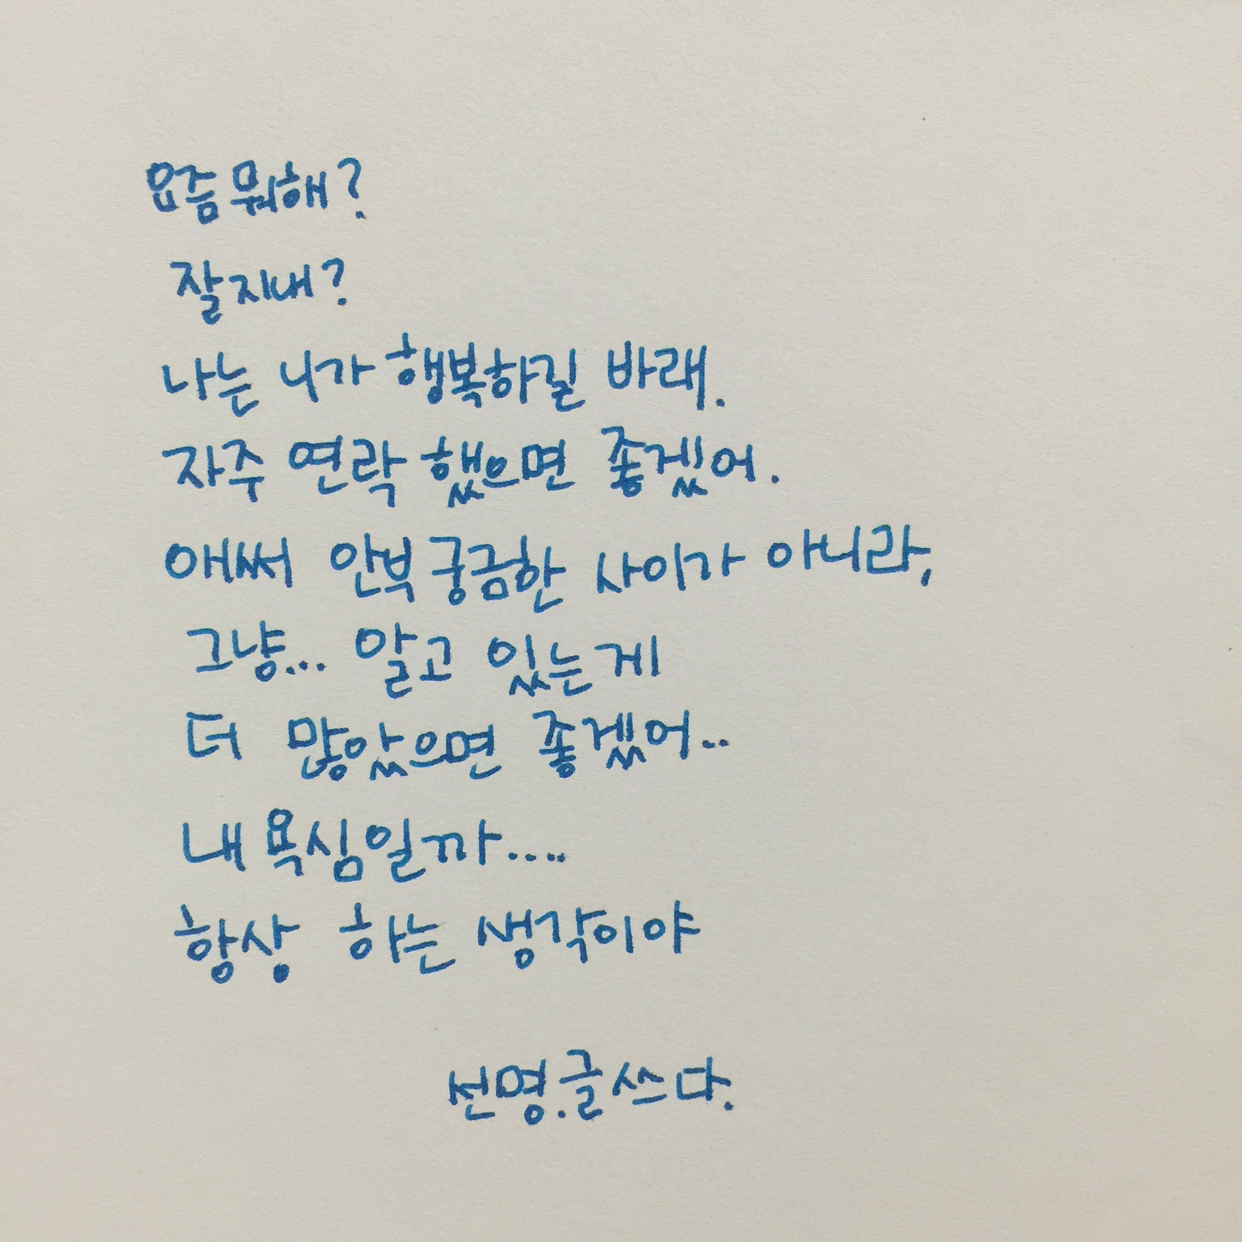 요즘 뭐해?
잘지내?
나는 니가 행복하길 바래.
자주 연락 했으면 좋겠어.
애써 안부 궁금한 사이가 아니라,
그냥... 알고 있는게
더 많았으면 좋겠어..
내 욕심일까....
항상 하는 생각이야
선명.글쓰다.